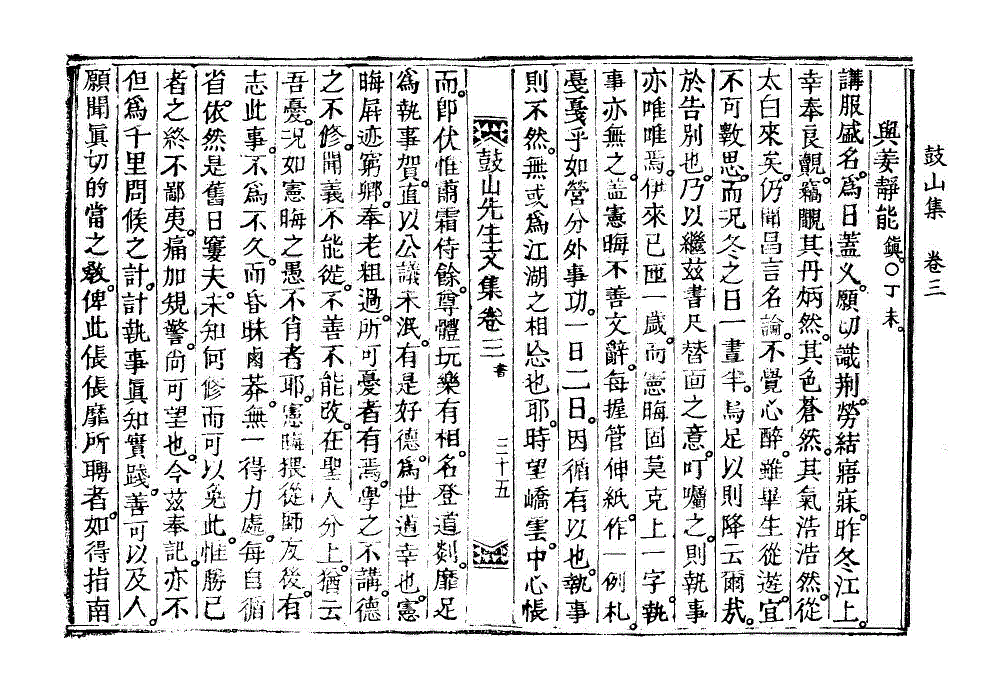 鼓山集　卷三
與姜靜能鎭○丁未
講服盛名。爲日蓋久。願切識荆。勞結寤寐。昨冬江上。
幸奉良覿。竊覸其丹炳然。其色蒼然。其氣浩浩然。從
太白來矣。仍聞昌言名論。不覺心醉。雖畢生從遊。宜
不可斁思。而况冬之日一晝半。烏足以則降云爾哉。
於告別也。乃以繼玆書尺替面之意。叮囑之。則執事
亦唯唯焉。伊來已匝一歲。而憲晦固莫克上一字。執
事亦無之。盖憲晦不善文辭。每握管伸紙作一例札。
戞戞乎如營分外事功。一日二日。因循有以也。執事
則不然。無或爲江湖之相忘也耶。時望嶠雲。中心悵
鼓山先生文集卷三　書　二十五
而。卽伏惟肅霜侍餘。尊體玩樂有相。名登道剡。靡足
爲執事賀。直以公議未泯。有是好德。爲世道幸也。憲
晦屛迹窮鄕。奉老粗過。所可憂者有焉。學之不講。德
之不修。聞義不能從。不善不能改。在聖人分上。猶云
吾憂。况如憲晦之愚不肖者耶。憲晦猥從師友後。有
志此事。不爲不久。而昏昧鹵莽。無一得力處。每自循
省。依然是舊日窶夫。未知何修而可以免此。惟勝己
者之終不鄙夷。痛加規警。尙可望也。今玆奉記。亦不
但爲千里問候之計。計執事眞知實踐。善可以及人。
願聞眞切的當之敎。俾此倀倀靡所騁者。如得指南